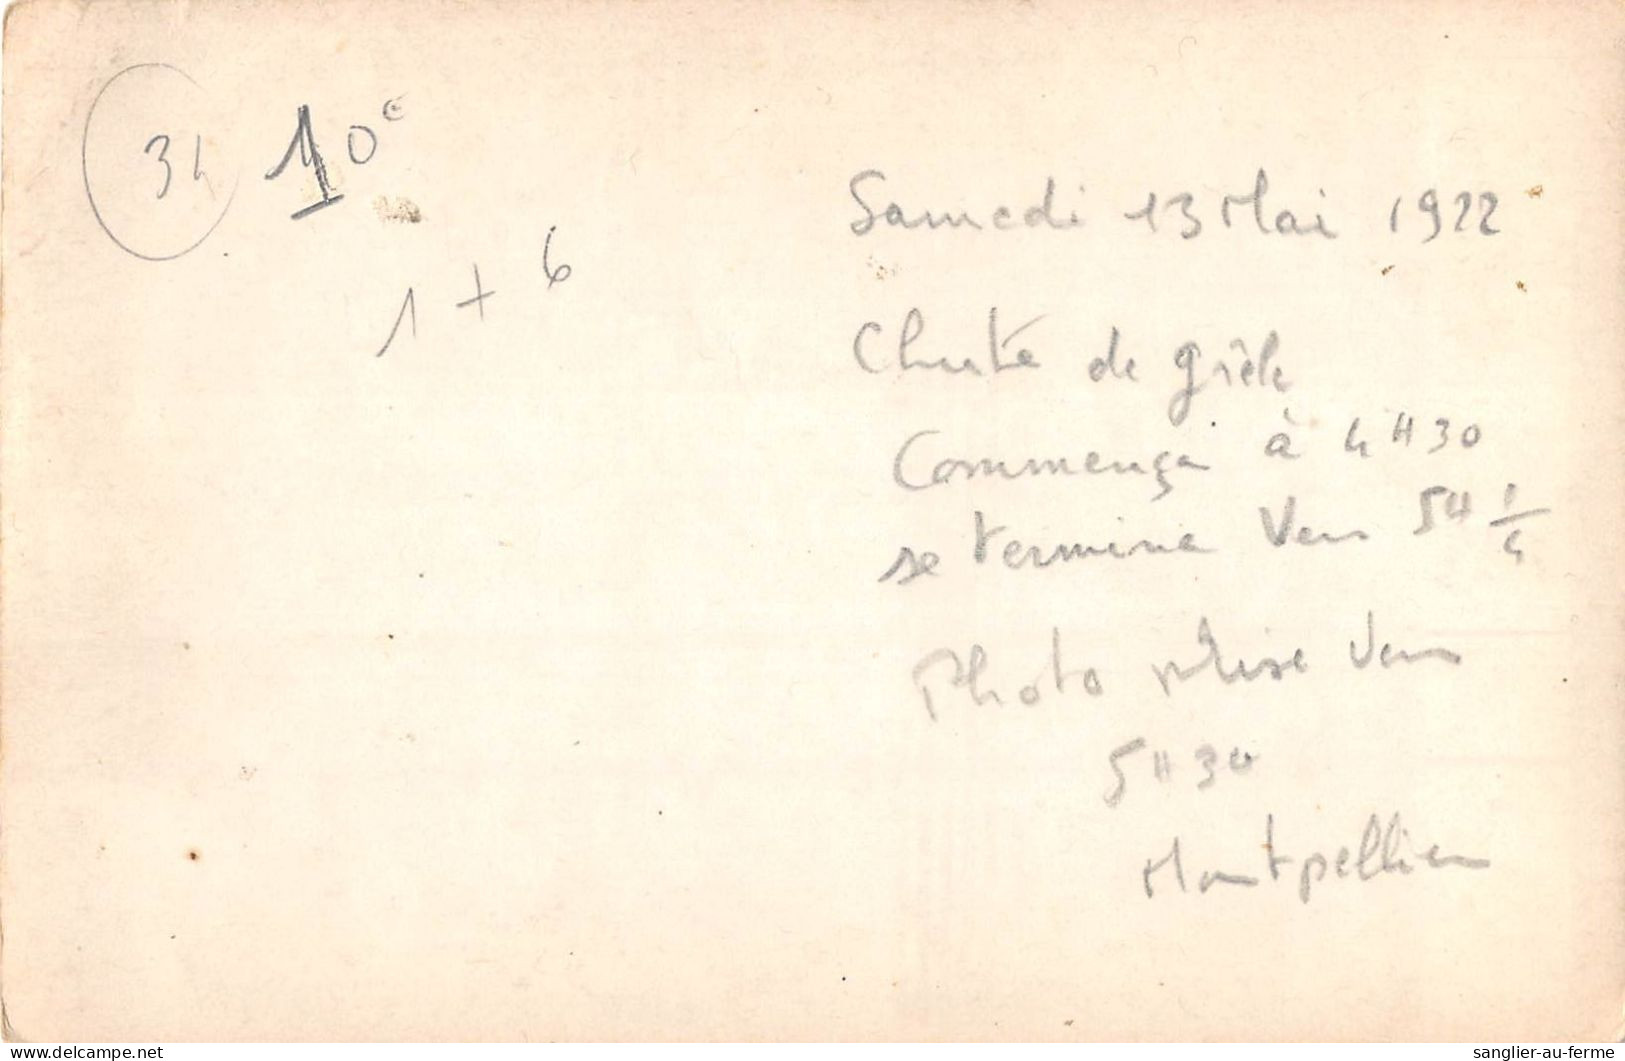 34 10€
1 + 6
Samedi 13 Mai 1922
Chute de grêle
Commença à 4H30
se termine Vers 5H 1/4
Photo prise Vers
5H30
Montpellier
delcampe.net
sanglier-au-ferme